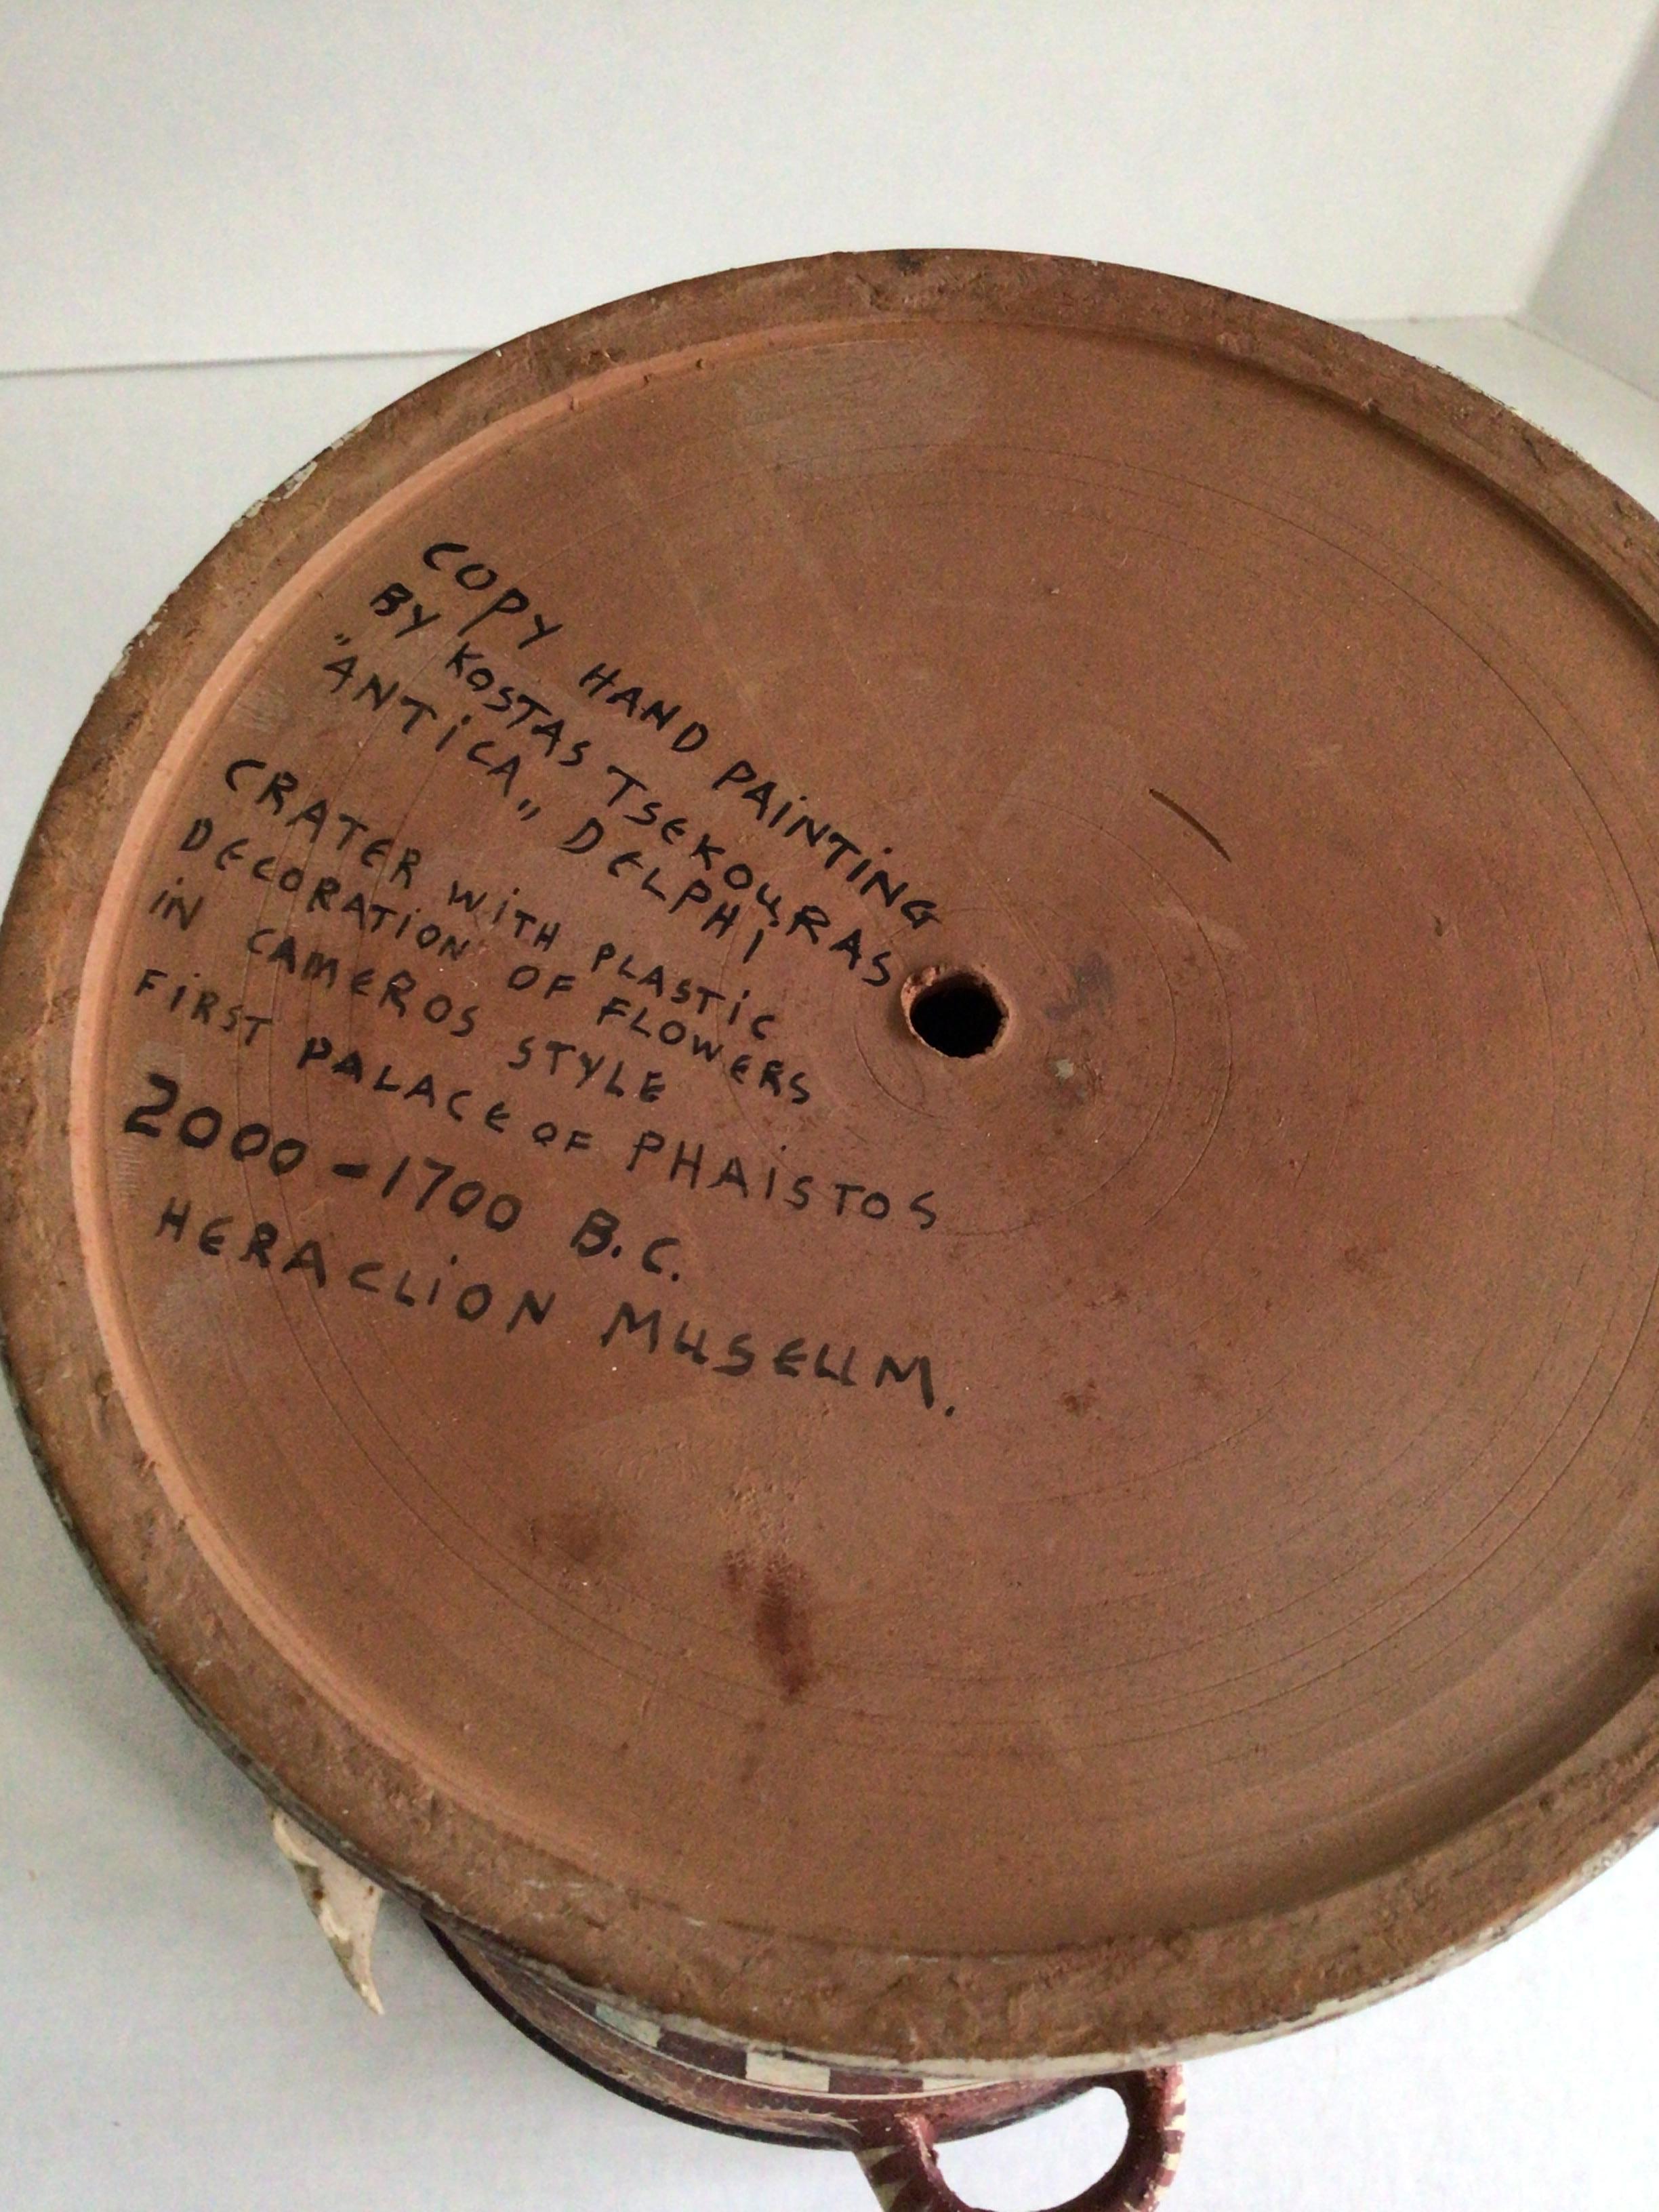 COPY HAND PAINTING
BY KOSTAS TSEKOURAS
"ANTICA" DELPHI
CRATER WITH PLASTIC
DECORATION OF FLOWERS
IN CAMEROS STYLE
FIRST PALACE OF PHAISTOS
2000-1700 B.C.
HERACLION MUSEUM.